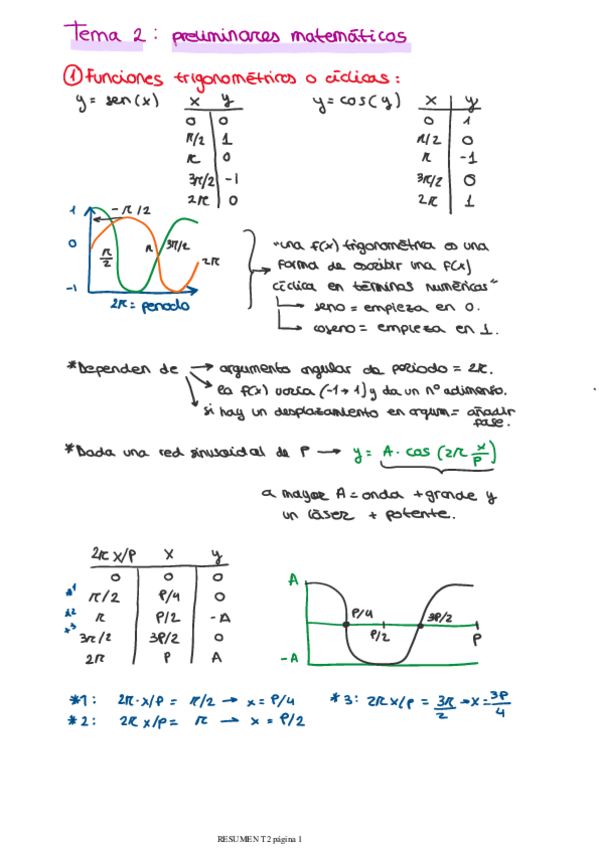 Tema 2: preliminares matemáticos
① Funciones trigonométricas o cíclicas:
y= sen(x)
x y
0 0
π/2 1
π 0
3π/2 -1
2π 0
y=cos(y)
x y
0 1
π/2 0
π -1
3π/2 0
2π 1
1
0
-1
-π/2
π/2
π
3π/2
2π
2π= periodo
"una f(x) trigonométrica es una
forma de escribir una f(x)
cíclica en términos numéricos"
→ seno = empieza en 0.
→ coseno = empieza en 1.
*Dependen de → argumento angular de periodo = 2π.
→ la f(x) varía (-1→1) y da un nº adimens.
→ si hay un desplazamiento en argum= añadir
fase.
*Dada una red sinusoidal de P → y= A· cos (2π x/P)
a mayor A=onda +grande y
un láser + potente.
2π x/P x y
0 0 0
*1 π/2 P/4 0
*2 π P/2 -A
*3 3π/2 3P/2 0
2π P A
A
-A
P/4
P/2
3P/2
P
*1: 2π·x/P = π/2 → x=P/4
*2: 2π x/P= π → x = P/2
*3: 2π x/P = 3π/2 → x=3P/4
RESUMEN T2 página 1